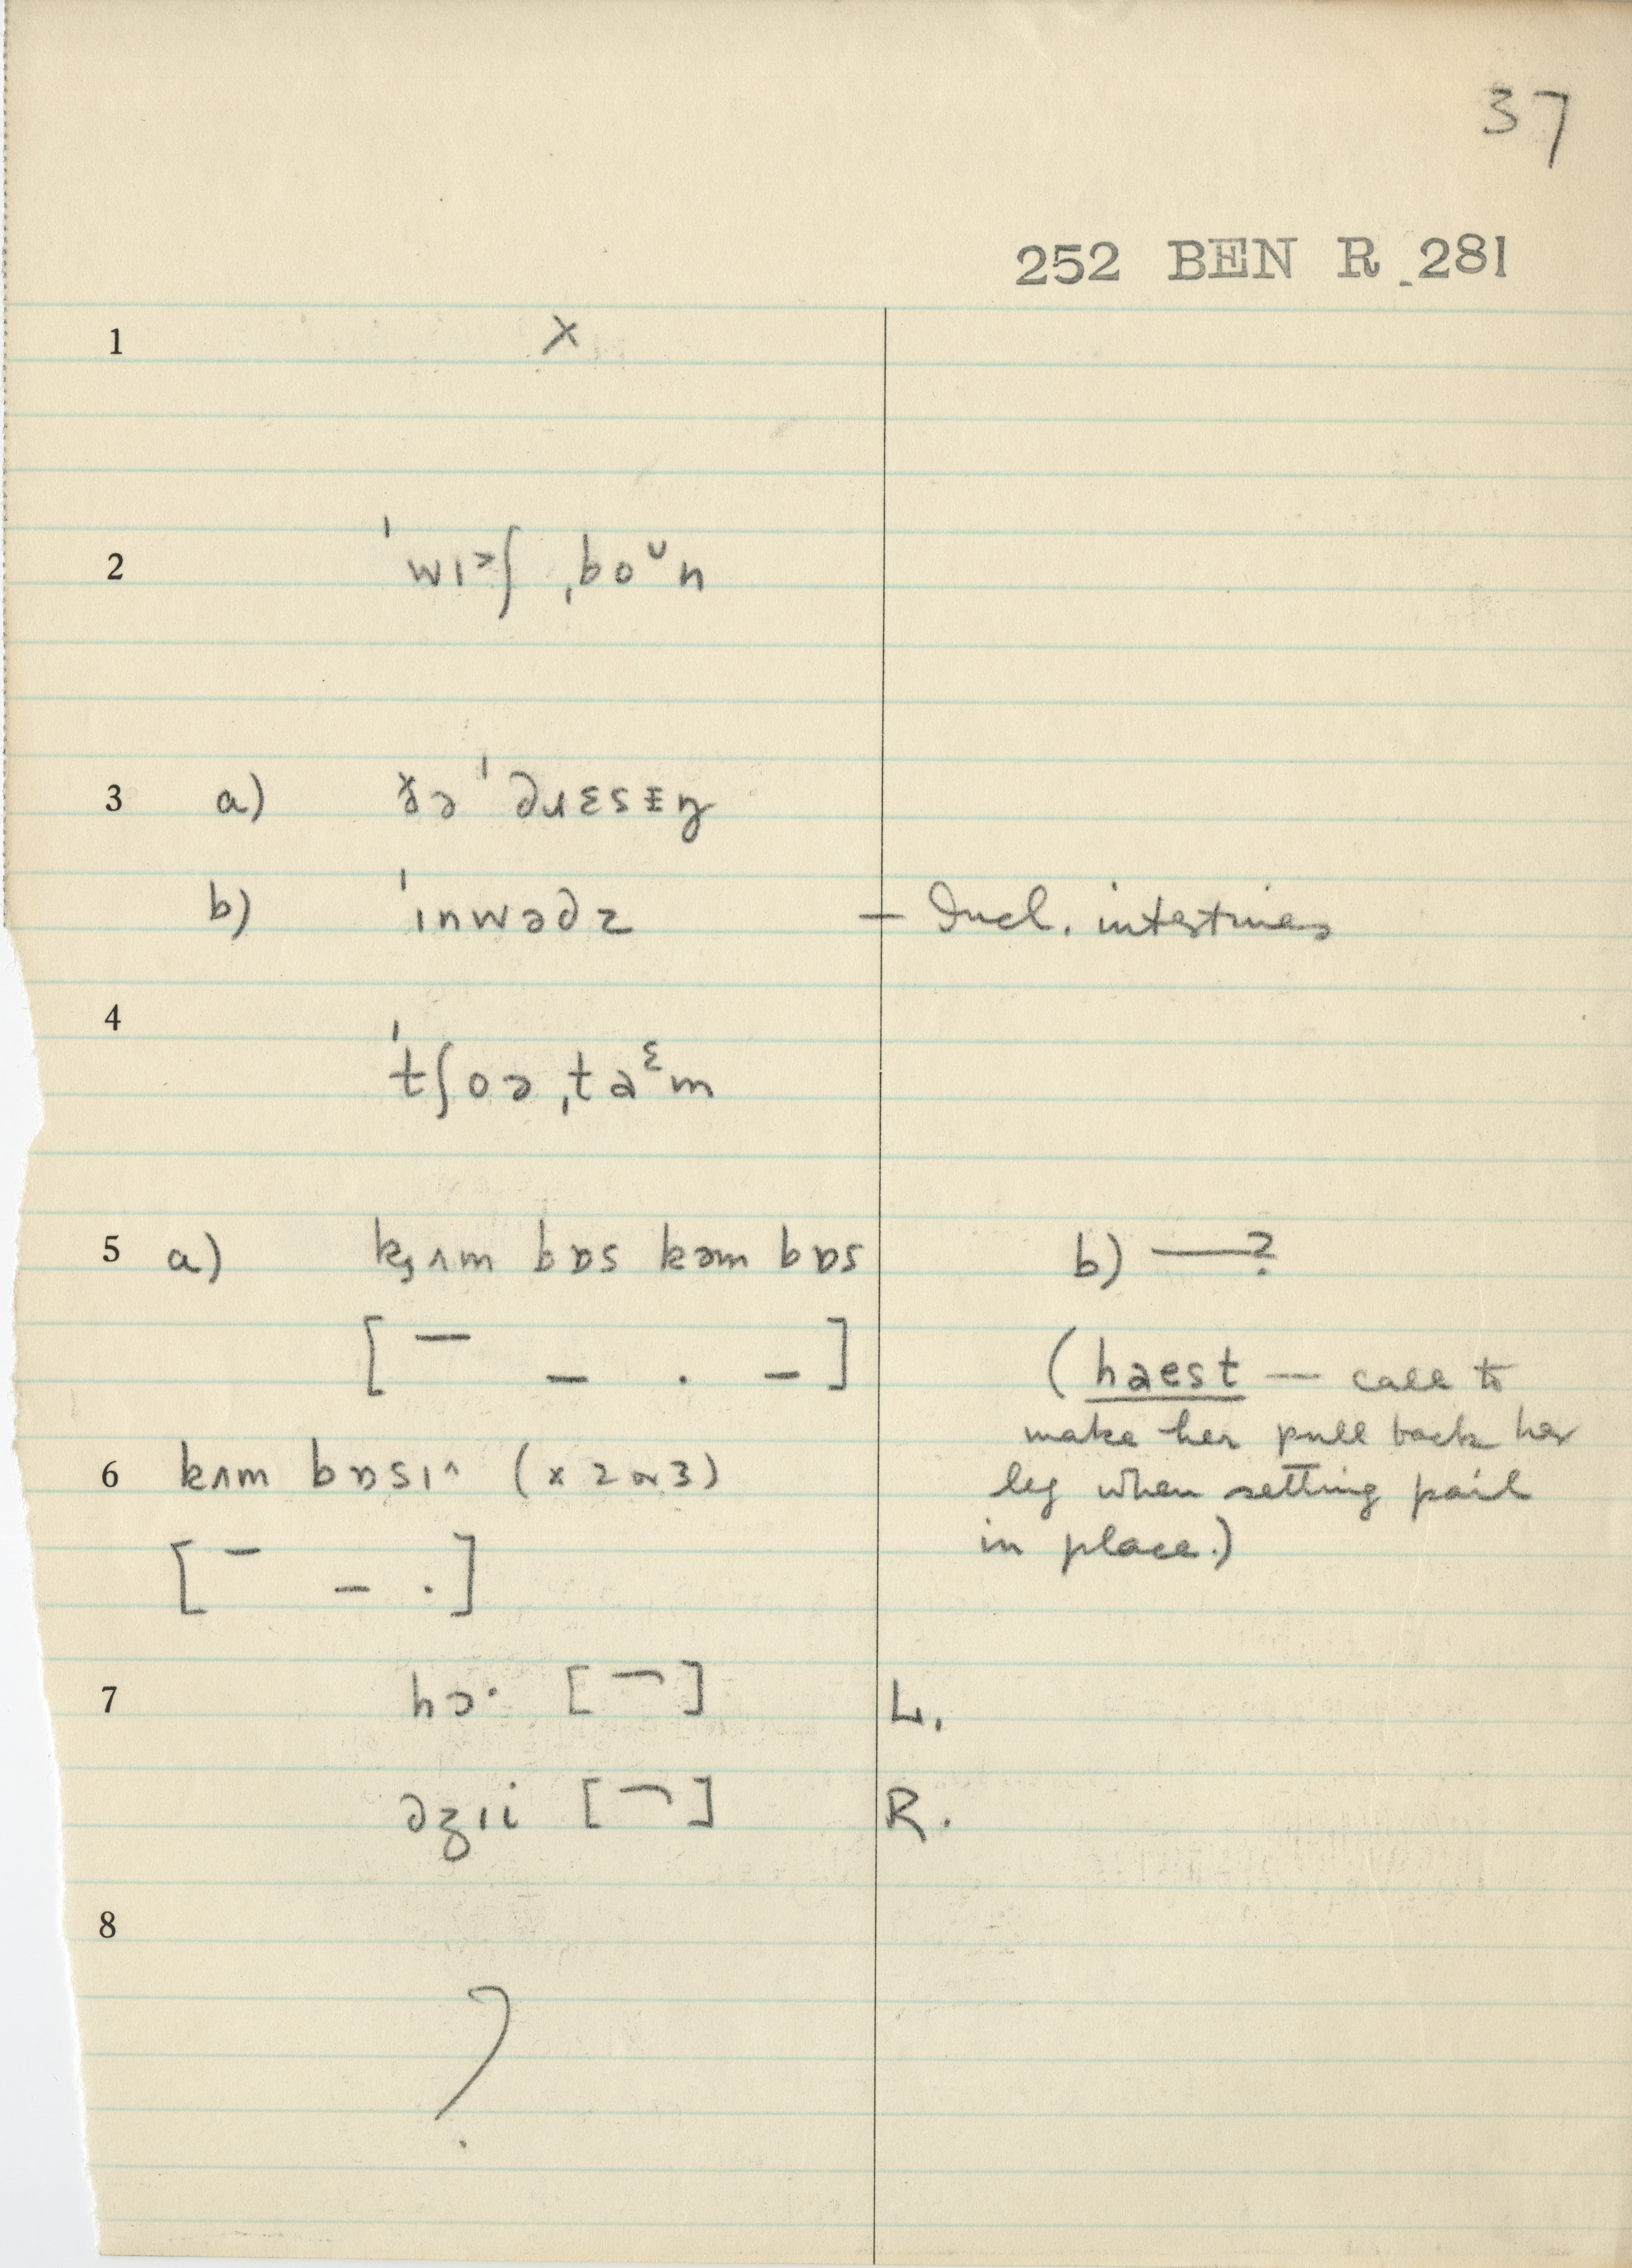 37
252 BEN R 281
1 x
2 ˈwɪ˃ʃ ˌboᵘn
3 a) ðə ˈdɹɛsɪŋ
b) ˈɪnwədz — Incl. intestines
4
ˈtʃoə ˌtaᵋm
5 a) kʌm bɒs kəm bɒs b) —?
[ ¯ – . – ]
(haest — call to
make her pull back her
6 kʌm bɒsɪ^ (x 2 or 3)
leg when setting pail
in place.)
[ ¯ – . ]
7 hɔ· [ ¬ ] L.
dʒɪi [ ¬ ] R.
8
?